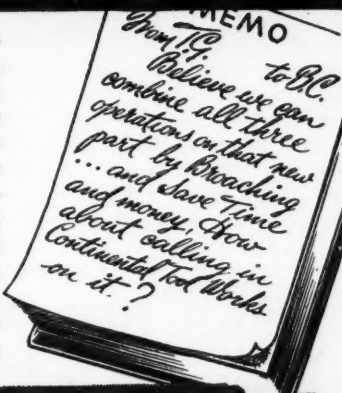 MEMO
From T.G.
to B.C.
Believe we can
combine all three
operations on that new
part by Broaching
... and Save Time
and money. How
about calling in
Continental Tool Works
on it?